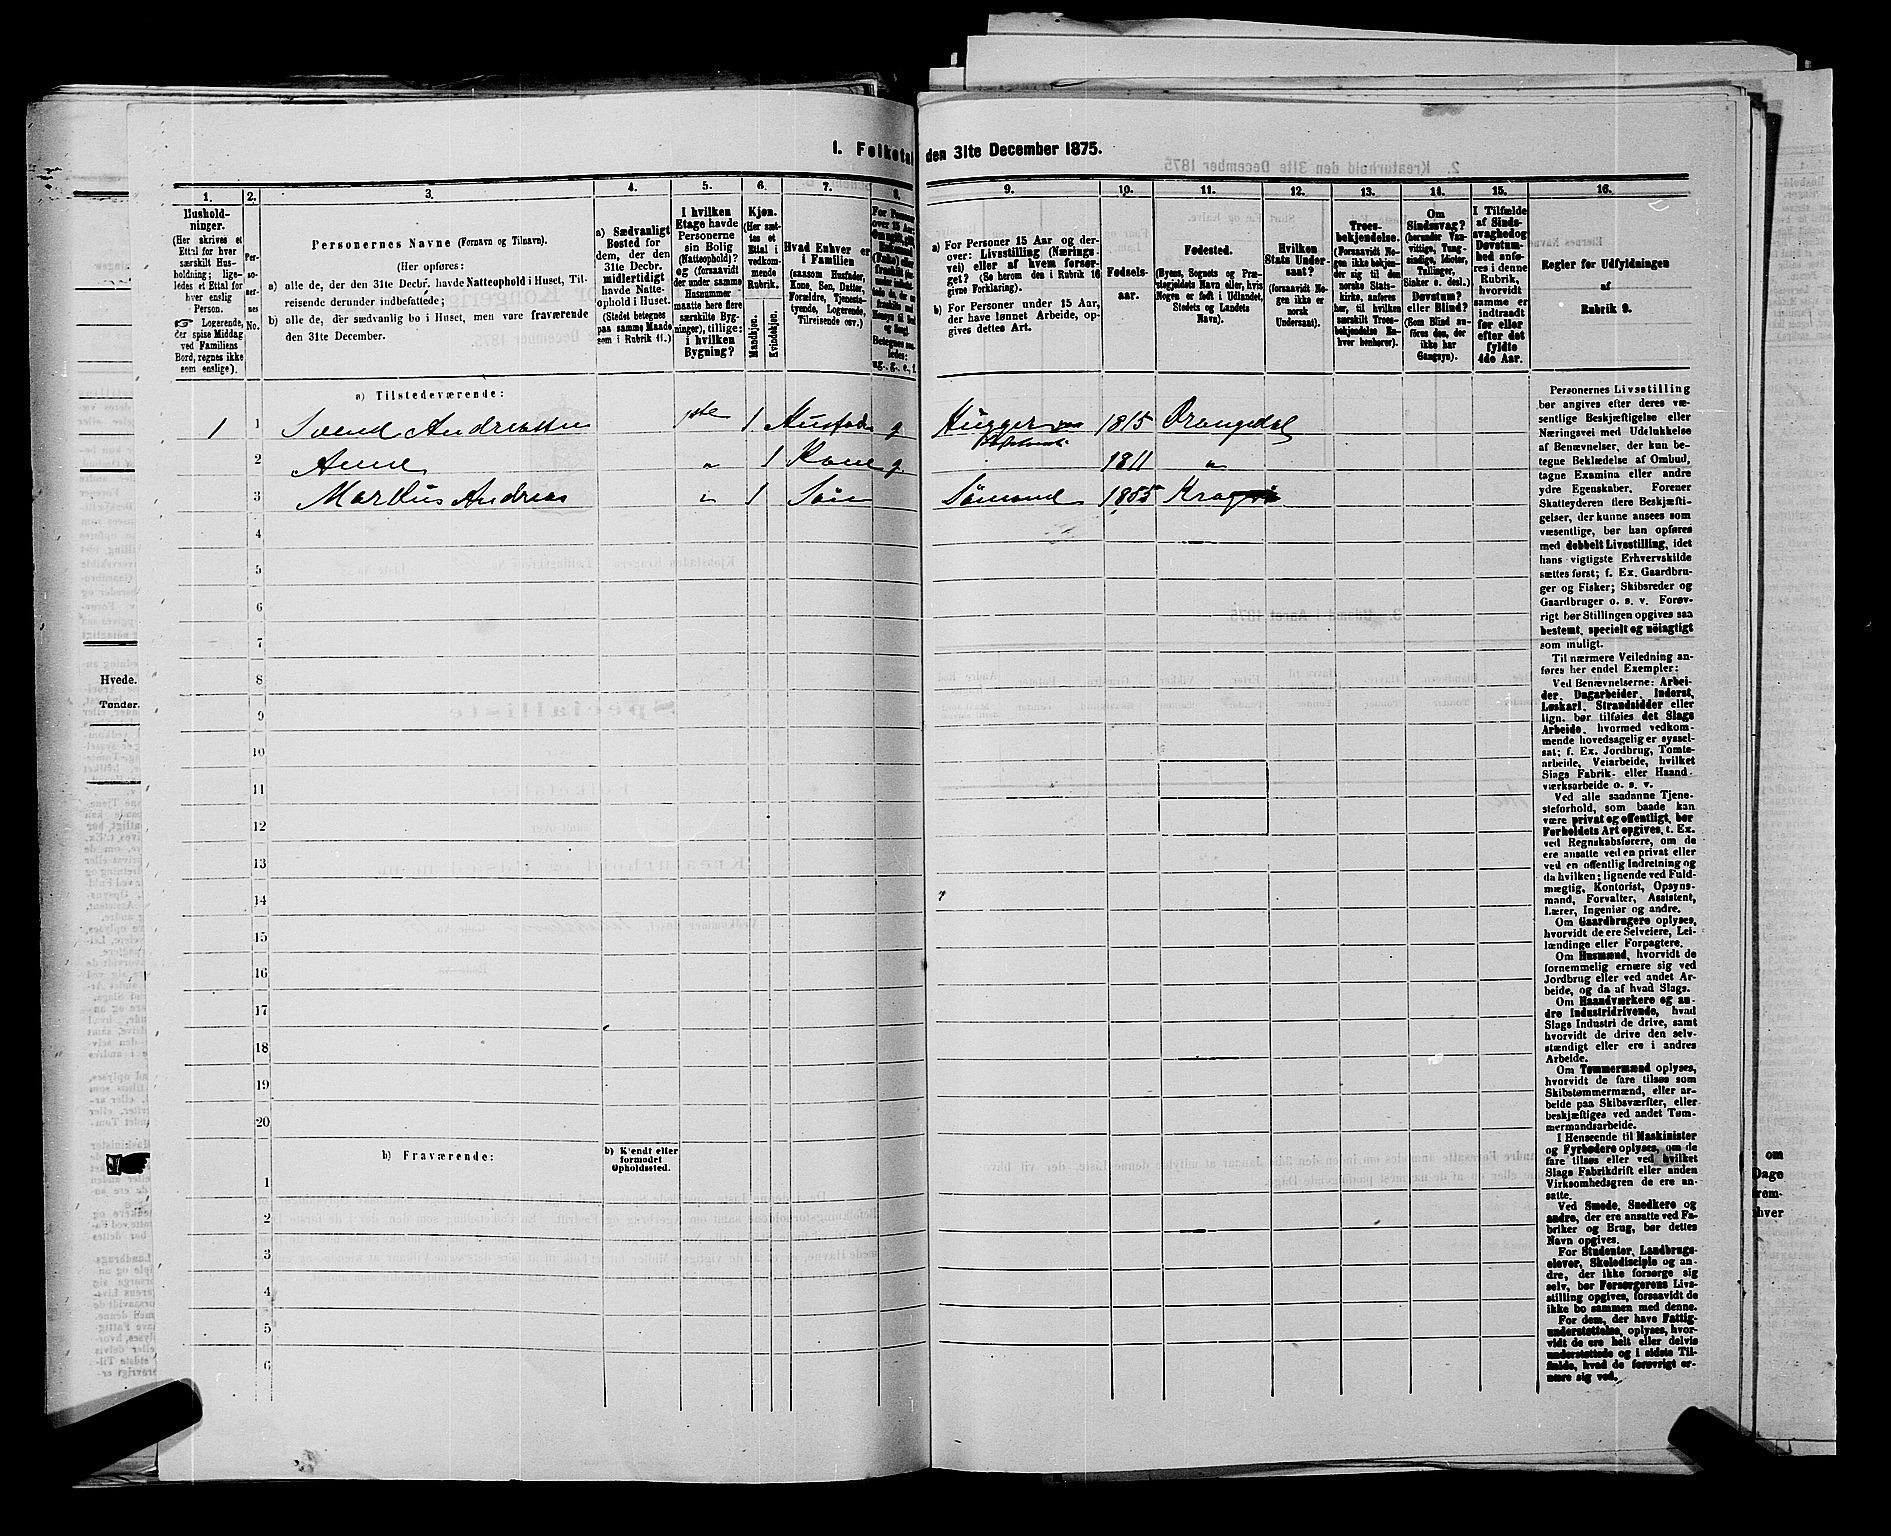 I. Folketal den 31te December 1875.
1. 2. 3. 4. 5. 6. 7. 8. 9. 10. 11. 12. 13. 14. 15. 16.
Hushold-
ninger.
(Her skrives et
Ettal for hver
særskilt Hus-
holdning; lige-
ledes et Ettal for
hver enslig
Person.
☞ Logerende,
der spise Middag
ved Familiens
Bord, regnes ikke
som enslige).
Per-
so-
ner-
nes
No.
Personernes Navne (Fornavn og Tilnavn).
(Her opføres:
a) alle de, der den 31te Decbr. havde Natteophold i Huset, Til-
reisende derunder indbefattede;
b) alle de, der sædvanlig bo i Huset, men vare fraværende
den 31te December.
a) Sædvanligt
Bosted for
dem, der den
31te Decbr.
midlertidigt
havde Natte-
ophold i Huset.
(Stedet betegnes
paa samme Maade
som i Rubrik 11.)
I hvilken
Etage havde
Personerne
sin Bolig
(Natteophold)?
og (forsaavidt
der under samme
Husnummer
maatte være flere
særskilte Byg-
ninger), tillige:
i hvilken
Bygning?
Kjøn.
(Her sæt-
tes et
Ettal i
vedkom-
mende
Rubrik.
Mandkjøn.
Kvindekjøn.
Hvad Enhver er
i Familien
(saasom Husfader,
Kone, Søn, Datter,
Forældre, Tjeneste-
tyende, Logerende,
Tilreisende osv.)
For Personer
over 15 Aar
Betegnes saa-
ledes:
ug., g., e., f.
a) For Personer 15 Aar og der-
over: Livsstilling (Nærings-
vei) eller af hvem forsør-
get? (Se herom den i Rubrik 16
givne Forklaring).
b) For Personer under 15 Aar,
der have lønnet Arbeide, op-
gives dettes Art.
Fødsels-
aar.
Fødested.
(Byens, Sognets og Præ-
stegjeldets Navn eller, hvis
Nogen er født i Udlandet,
Stedets og Landets
Navn).
Hvilken
Stats Under-
saat?
(forsaavidt No-
gen ikke er
norsk
Undersaat).
Troes-
bekjendelse.
(Forsaavidt No-
gen ikke bekjen-
der sig til den
norske Stats-
kirke, anføres
her, til hvilken
særskilt Troes-
bekjendelse En-
hver henhører).
Om
Sindssvag?
(herunder Van-
vittige, Tung-
sindige, Idioter,
Tullinger,
Sinker o. desl.)
Døvstum?
eller Blind?
(Som Blind an-
føres den, der
ikke har
Gangsyn).
I Tilfælde
af Sinds-
svaghed og
Døvstum-
hed anfø-
res i denne
Rubrik,
hvorvidt
samme er
indtraadt
før eller
efter det
fyldte
4de Aar.
Regler for Udfyldningen
af
Rubrik 9.
a) Tilstedeværende:
1 1 Svend Andreassen 1ste 1 Husfader g Hugger 1815 Drangedal
2 Anne " 1 Kone g 1811 "
3 Marthus Andreas " 1 Søn Sømand 1855 Kragerø
4
5
6
7
8
9
10
11
12
13
14
15
16
17
18
19
20
b) Fraværende:
b) Kjendt eller
formodet
Opholdssted.
1
2
3
4
5
6
Personernes Livsstilling
bør angives efter deres væ-
sentlige Beskjæftigelse eller
Næringsvei med Udelukkelse
af Benævnelser, der kun be-
tegne Beklædelse af Ombud,
tagne Examina eller andre
ydre Egenskaber. Forener
Skatteyderen flere Beskjæfti-
gelser, der kunne ansees som
væsentlige, bør han opføres
med dobbelt Livsstilling, idet
hans vigtigste Erhvervskilde
sættes først; f. Ex. Gaardbru-
ger og Fisker; Skibsreder og
Gaardbruger o. s. v. Forøv-
rigt bør Stillingen opgives saa
bestemt, specielt og nøiagtigt
som muligt.
Til nærmere Veiledning an-
føres her endel Exempler:
Ved Benævnelserne: Arbei-
der, Dagarbeider, Inderst,
Løskarl, Strandsidder eller
lign. bør tilføies det Slags
Arbeide, hvormed vedkom-
mende hovedsagelig er syssel-
sat; f. Ex. Jordbrug, Tomte-
arbeide, Veiarbeide, hvilket
Slags Fabrik- eller Haand-
værksarbeide o. s. v.
Ved alle saadanne Tjene-
steforhold, som baade kan
være privat og offentligt, bør
Forholdets Art opgives, t. Ex.
ved Regnskabsførere, om de
ere ansatte ved en privat eller
ved en offentlig Indretning og
da hvilken; lignende ved Fuld-
mægtig, Kontorist, Opsyns-
mand, Forvalter, Assistent,
Lærer, Ingeniør og andre.
Om Gaardbrugere oplyses,
hvorvidt de ere Selveiere, Lei-
lændinge eller Forpagtere.
Om Husmænd, hvorvidt de
fornemmelig ernære sig ved
Jordbrug eller ved andet Ar-
beide, og da af hvad Slags.
Om Haandværkere og an-
dre Industridrivende, hvad
Slags Industri de drive, samt
hvorvidt de drive den selv-
stændigt eller ere i andres
Arbeide.
Om Tømmermænd oplyses,
hvorvidt de fare tilsøs som
Skibstømmermænd, eller ar-
beide paa Skibsværfter, eller
beskjæftiges ved andet Tøm-
mermandsarbeide.
I Henseende til Maskinister
og Fyrbødere oplyses, om de
fare tilsøs eller ved hvilket
Slags Fabrikdrift eller anden
Virksomhedsgren de ere an-
satte.
Ved Smede, Snedkere og
andre, der ere ansatte ved Fa-
briker og Brug, bør dettes
Navn opgives.
For Studenter, Landbrugs-
elever, Skoledisciple og an-
dre, der ikke forsørge sig
selv, bør Forsørgerens Livs-
stilling opgives, forsaavidt de
ikke bo sammen med denne.
For dem, der have Fattig-
understøttelse, oplyses, hvor-
vidt de ere helt eller delvis
understøttede og i sidste Til-
fælde, hvad de forøvrigt er-
nære sig ved.
Hvede.
Tønder.
om
Dage
frem-
hver